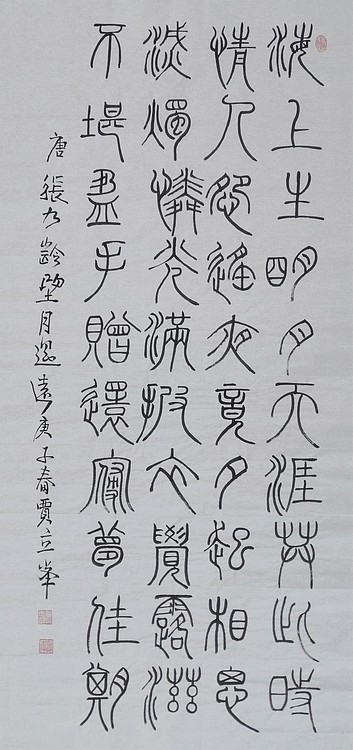 海上生明月天涯共此時
情人怨遙夜竟夕起相思
滅燭憐光滿披衣覺露滋
不堪盈手贈還寢夢佳期
唐張九齡望月懷遠庚子春賈立